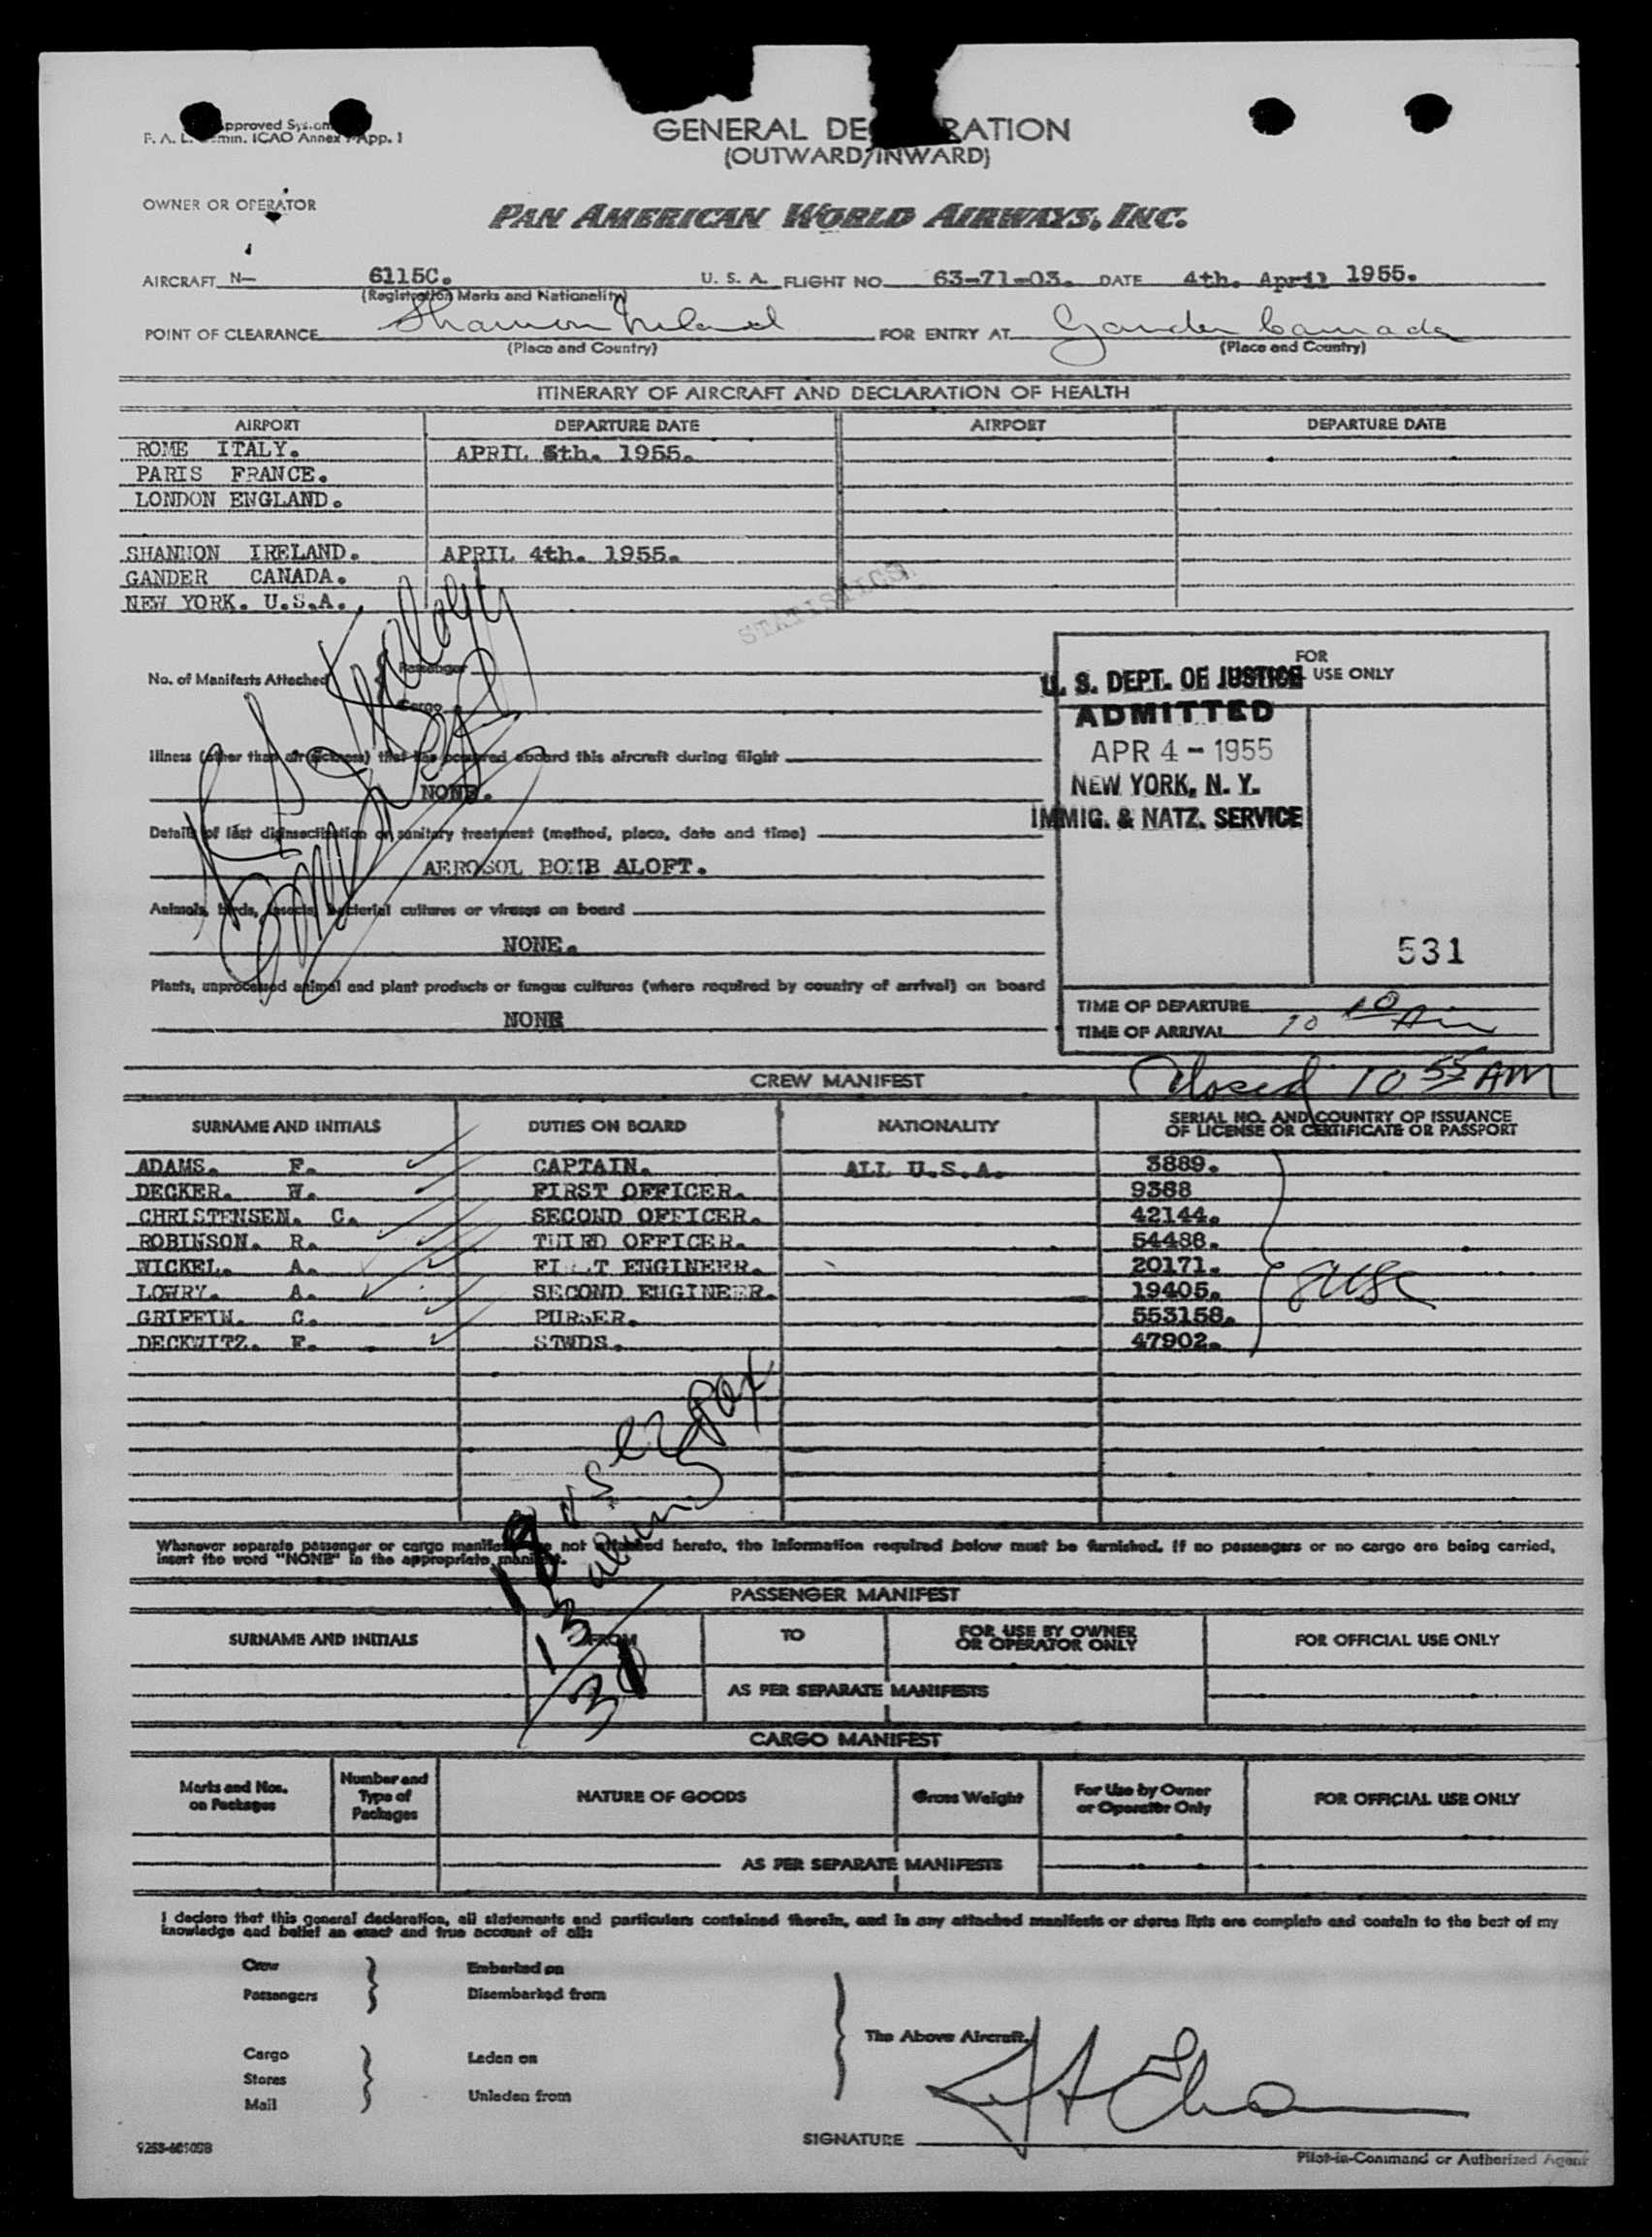 Approved
F. A. L. ICAO Annex App. 1
GENERAL DE RATION
(OUTWARD/INWARD)
OWNER OR OPERATOR
PAN AMERICAN WORLD AIRWAYS, INC.
AIRCRAFT N— 6115C. U. S. A. FLIGHT NO 63-71-03. DATE 4th. April 1955.
(Registration Marks and Nationality)
POINT OF CLEARANCE Shannon Ireland FOR ENTRY AT Gander Canada
(Place and Country) (Place and Country)
ITINERARY OF AIRCRAFT AND DECLARATION OF HEALTH
AIRPORT DEPARTURE DATE AIRPORT DEPARTURE DATE
ROME ITALY. APRIL 1955.
PARIS FRANCE.
LONDON ENGLAND.
SHANNON IRELAND. APRIL 4th. 1955.
GANDER CANADA.
NEW YORK. U.S.A.
STATISTICS
No. of Manifests Attached Passenger
Cargo
Illness (other than airsickness) that has occurred aboard this aircraft during flight
NONE.
Details of last disinsectization or sanitary treatment (method, place, date and time)
AEROSOL BOMB ALOFT.
Animals, birds, insects, bacterial cultures or viruses on board
NONE.
Plants, unprocessed animal and plant products or fungus cultures (where required by country of arrival) on board
NONE
FOR
USE ONLY
U. S. DEPT. OF JUSTICE
ADMITTED
APR 4 - 1955
NEW YORK, N. Y.
IMMIG. & NATZ. SERVICE
531
TIME OF DEPARTURE
TIME OF ARRIVAL 10 10 Am
Closed 10 55 AM
CREW MANIFEST
SURNAME AND INITIALS DUTIES ON BOARD NATIONALITY SERIAL NO. AND COUNTRY OF ISSUANCE
OF LICENSE OR CERTIFICATE OR PASSPORT
ADAMS. F. CAPTAIN. ALL U.S.A. 3889.
DECKER. W. FIRST OFFICER. 9388
CHRISTENSEN. C. SECOND OFFICER. 42144.
ROBINSON. R. THIRD OFFICER. 54488.
WICKEL. A. FIRST ENGINEER. 20171.
LOWRY. A. SECOND ENGINEER. 19405.
GRIFFIN. C. PURSER. 553158.
DECKWITZ. F. STWDS. 47902.
Whenever separate passenger or cargo manifests are not attached hereto, the information required below must be furnished. If no passengers or no cargo are being carried,
insert the word "NONE" in the appropriate manifest.
PASSENGER MANIFEST
SURNAME AND INITIALS FROM TO FOR USE BY OWNER
OR OPERATOR ONLY FOR OFFICIAL USE ONLY
AS PER SEPARATE MANIFESTS
CARGO MANIFEST
Marks and Nos.
on Packages Number and
Type of
Packages NATURE OF GOODS Gross Weight For Use by Owner
or Operator Only FOR OFFICIAL USE ONLY
AS PER SEPARATE MANIFESTS
I declare that this general declaration, all statements and particulars contained therein, and in any attached manifests or stores lists are complete and contain to the best of my
knowledge and belief an exact and true account of all:
Crew Embarked on
Passengers Disembarked from
The Above Aircraft.
Cargo Laden on
Stores
Mail Unladen from
SIGNATURE
Pilot-in-Command or Authorized Agent